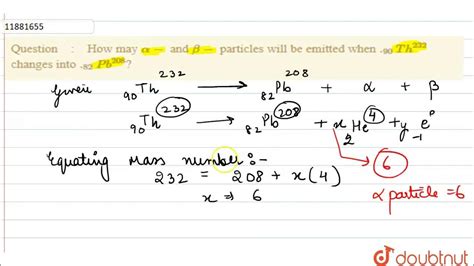 11881655
Question : How may α − and β − particles will be emitted when ₉₀Th²³² changes into ₈₂Pb²⁰⁸?
Given ₉₀Th²³² ⟶ ₈₂Pb²⁰⁸ + α + β
₉₀Th²³² ⟶ ₈₂Pb²⁰⁸ + x ₂He⁴ + y ₋₁e⁰
Equating Mass number :-
6
232 = 208 + x(4)
α particle = 6
x ⇒ 6
doubtnut